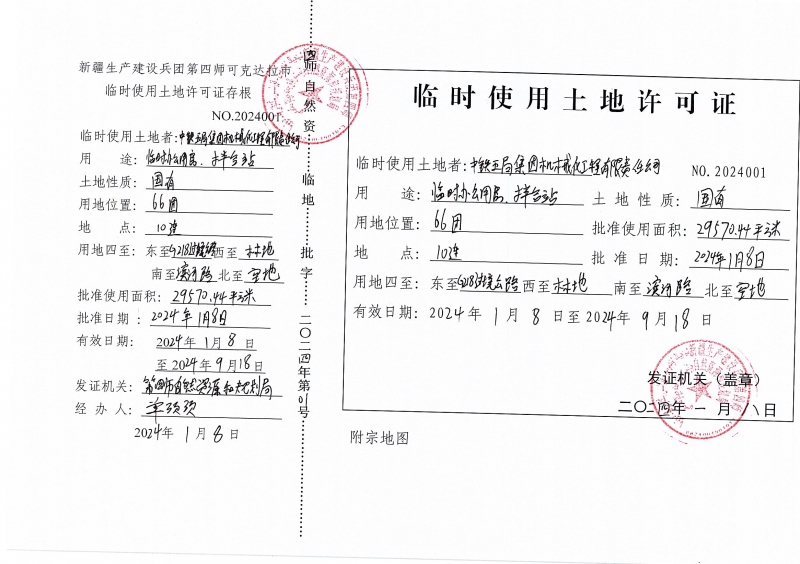 新疆生产建设兵团第四师可克达拉市
临时使用土地许可证存根
NO.2024001
临时使用土地者：中铁五局集团机械化工程有限责任公司
用　　途：临时办公用房、拌合站
土地性质：国有
用地位置：66团
地　　点：10连
用地四至：东至G218 西至林地
南至滨河路 北至空地
批准使用面积：29570.44平方米
批准日期：2024年1月8日
有效日期：2024年1月8日
至2024年9月18日
发证机关：第四师自然资源和规划局
经 办 人：
2024年1月8日
四师自然资 临地 批字 二〇二四年第01号
临时使用土地许可证
临时使用土地者：中铁五局集团机械化工程有限责任公司 NO.2024001
用　　途：临时办公用房、拌合站 土地性质：国有
用地位置：66团 批准使用面积：29570.44平方米
地　　点：10连 批准日期：2024年1月8日
用地四至：东至G218 公路 西至林地 南至滨河路 北至空地
有效日期：2024年 1月 8日至2024年 9月 18日
发证机关（盖章）
二〇二四年 一月 八日
附宗地图